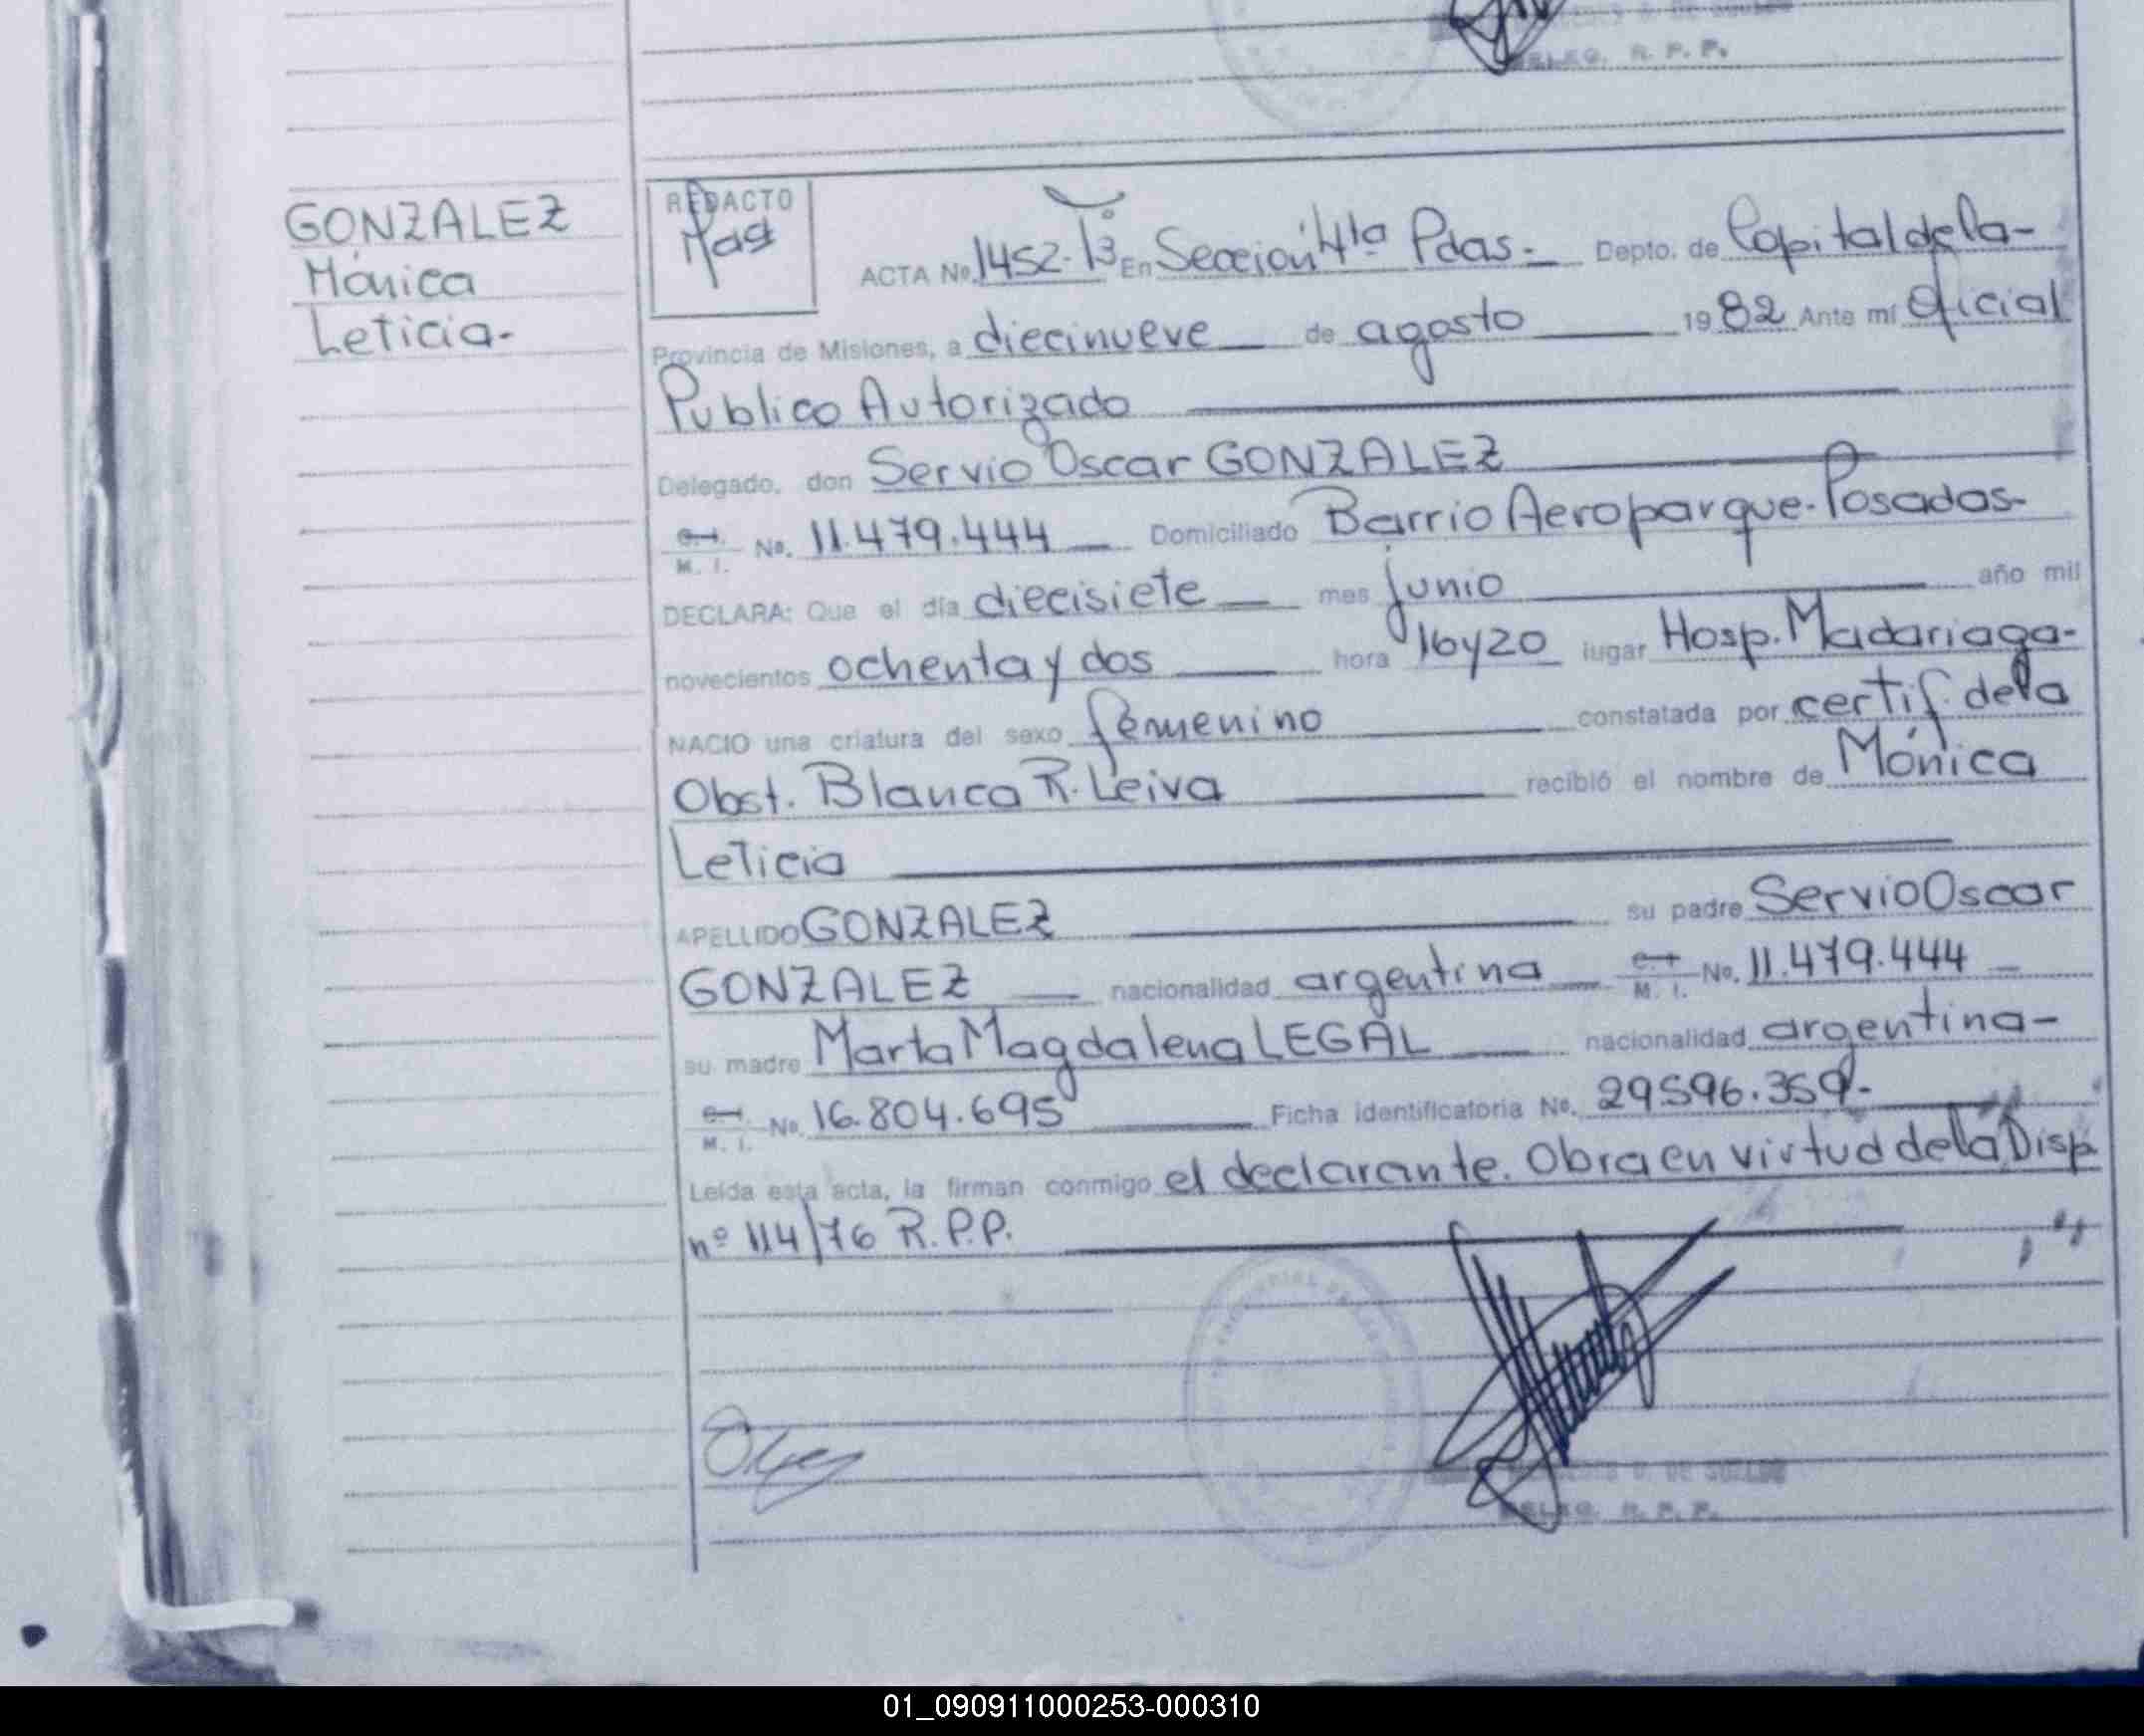 DELEG. R. P. P.
GONZALEZ
Mónica
Leticia.-
REDACTO
ACTA No. 1452-13 En Sección 4ta Pdas.- Depto. de Capital de la-
Provincia de Misiones, a diecinueve de agosto 1982 Ante mí Oficial
Publico Autorizado
Delegado, don Servio Oscar GONZALEZ
M. I. No. 11.479.444 Domiciliado Barrio Aeroparque-Posadas-
DECLARA: Que el día diecisiete mes junio año mil
novecientos ochenta y dos hora 16 y 20 lugar Hosp. Madariaga-
NACIO una criatura del sexo femenino constatada por certif. de la
Obst. Blanca R. Leiva recibió el nombre de Mónica
Leticia
APELLIDO GONZALEZ su padre Servio Oscar
GONZALEZ nacionalidad argentina M. I. No. 11.479.444
su madre Marta Magdalena LEGAL nacionalidad argentina-
M. I. No. 16.804.695 Ficha identificatoria No. 29.596.359.-
Leída esta acta, la firman conmigo el declarante. Obra en virtud de la Disp
nº 114/76 R.P.P.
DELEG. R. P. P.
01_090911000253-000310